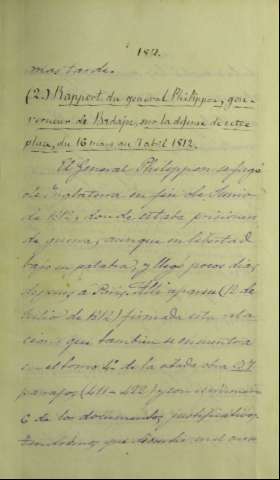 187.
mas tarde.
(2.) Rapport du general Philippon, gou-
verneur de Badajoz, sur la défense de cette
place, du 16 mars au 7 abril 1812.
El General Philippon se fugó
de Inglaterra en fin de Junio
de 1812, donde estaba prisionero
de guerra, aunque en libertad
bajo su palabra, y llegó pocos dias
despues á Paris. Allí aparece (12 de
Julio de 1812) firmada esta rela-
cion que tambien se encuentra
en el tomo 4º de la citada obra
paginas (411-422) y con
6 de los documentos justificativos
que